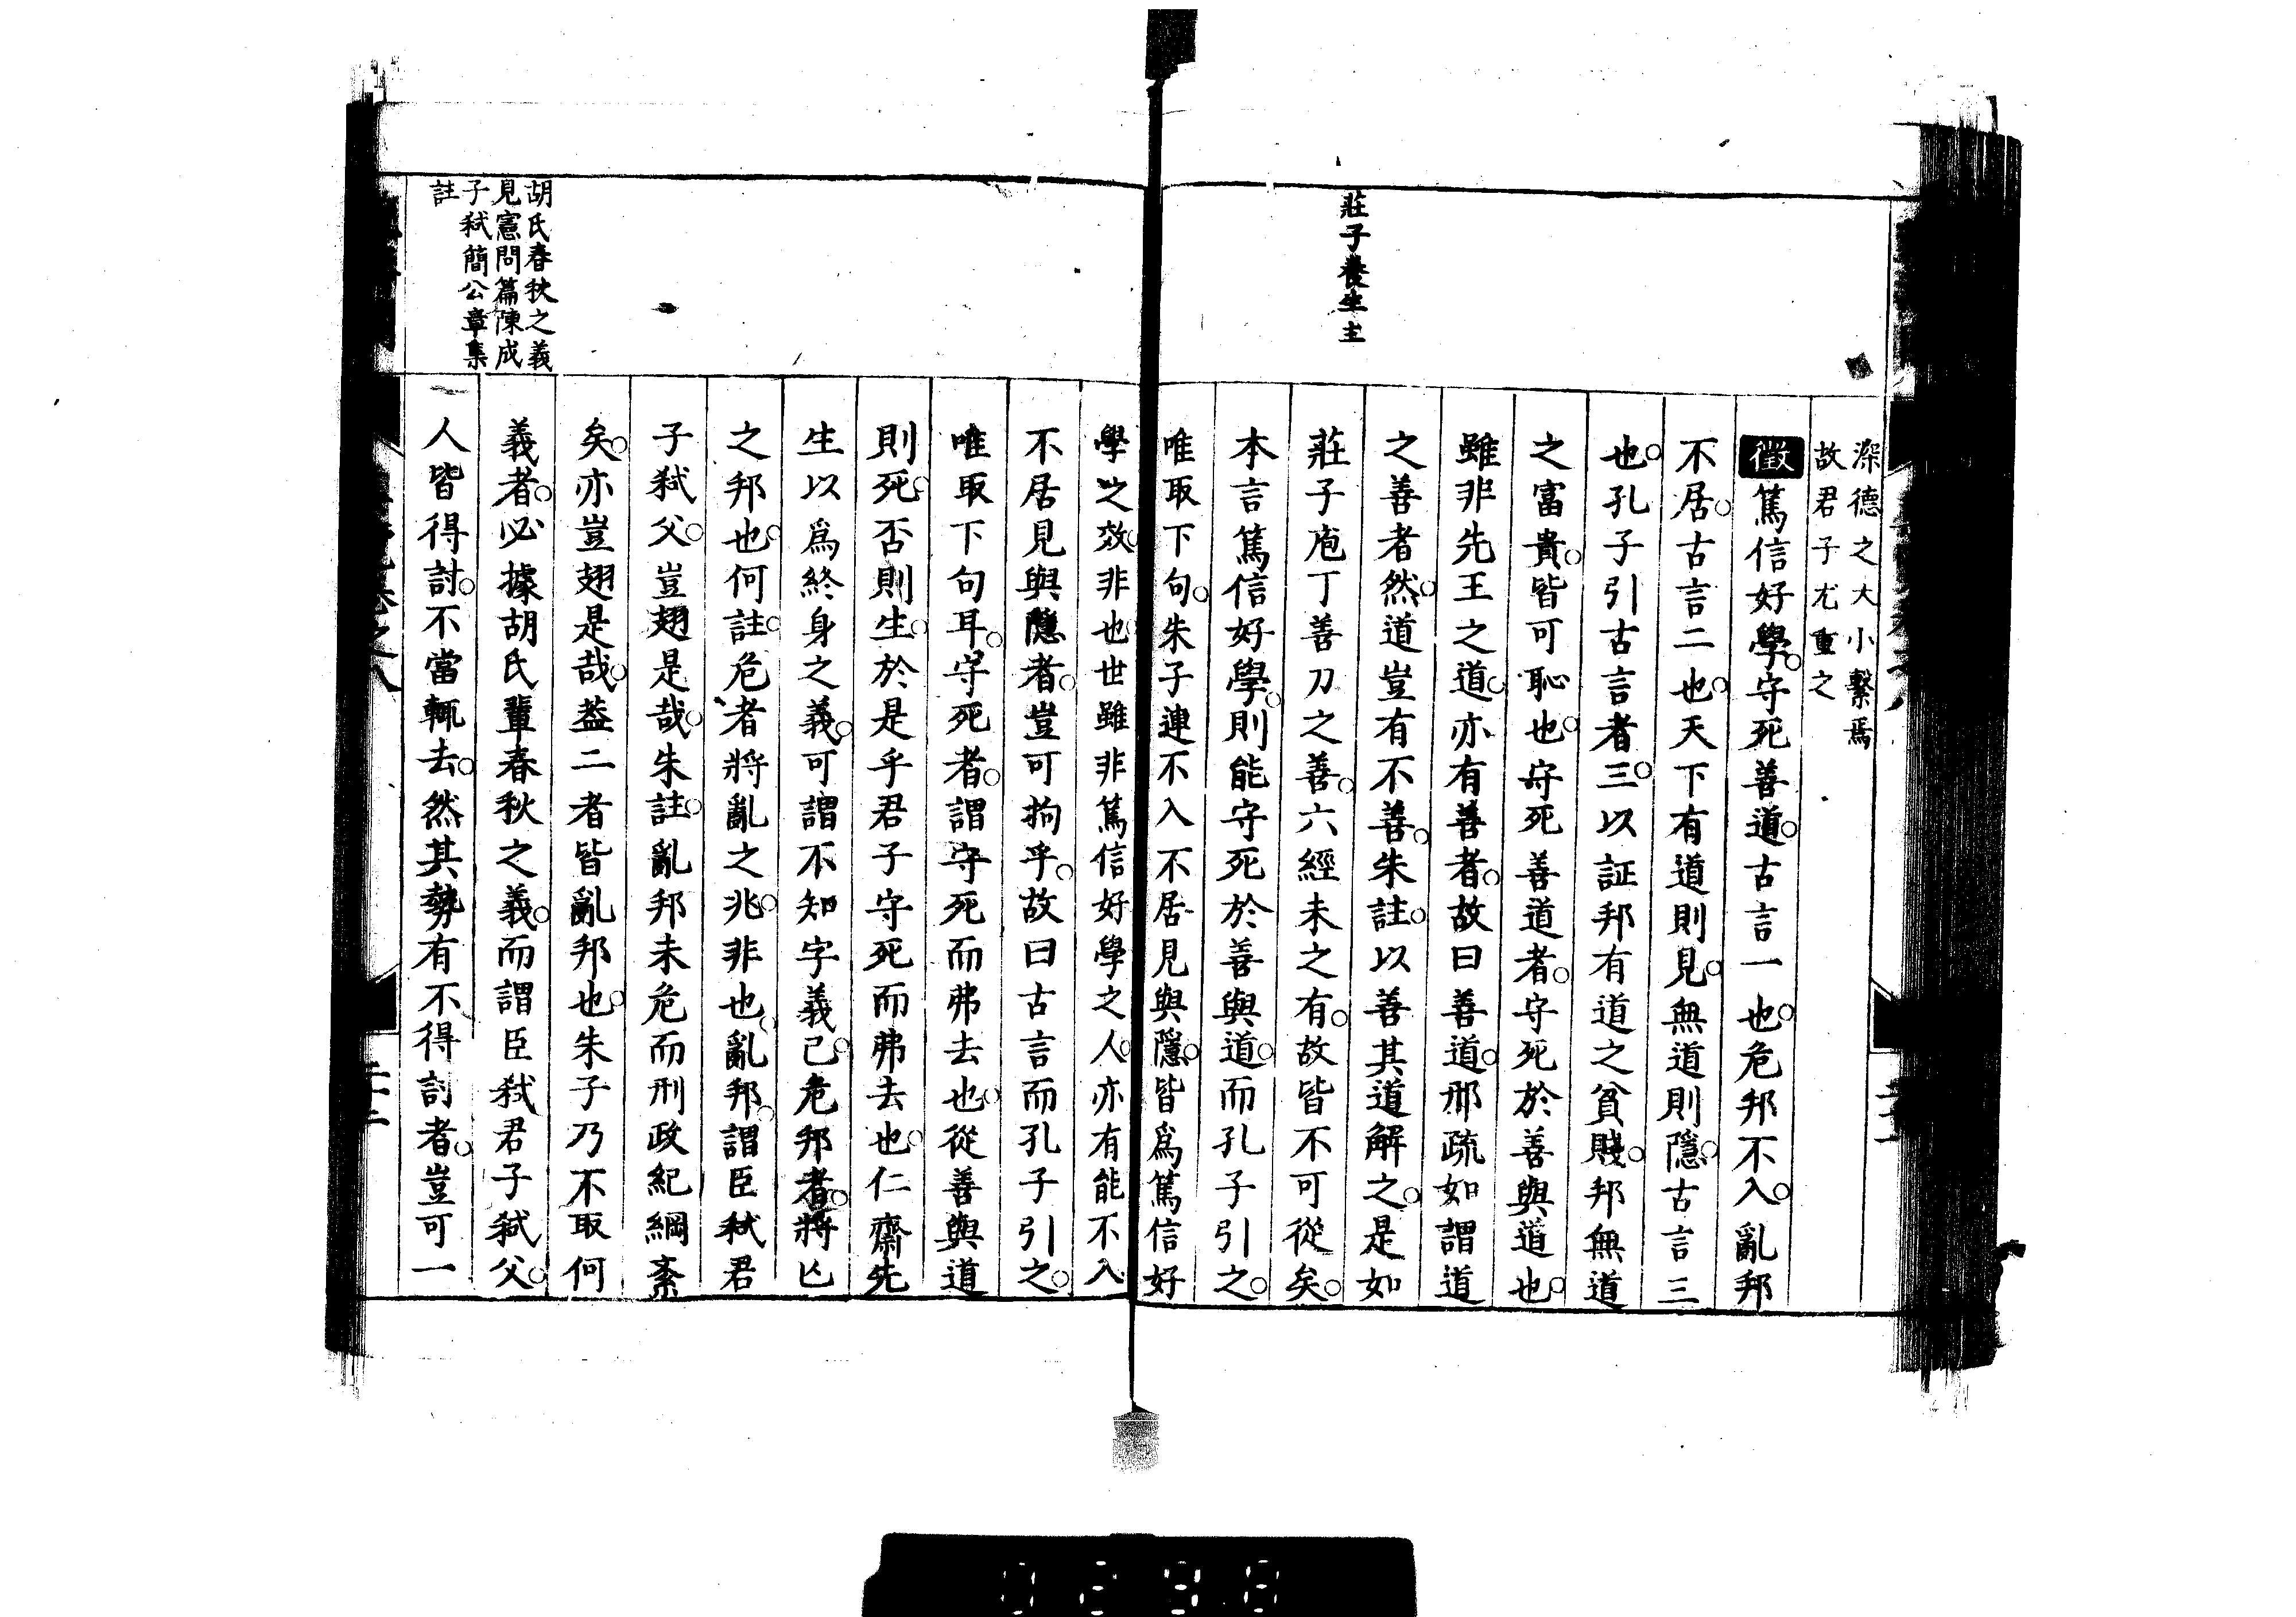 莊子養生主
深德之大小繫焉
故君子尤重之
徵篤信好學。守死善道。古言一也。危邦不入。亂邦
不居。古言二也。天下有道則見。無道則隱。古言三
也。孔子引古言者三。以証邦有道之貧賤。邦無道
之富貴。皆可恥也。守死善道者。守死於善與道也。
雖非先王之道。亦有善者。故曰善道。邢疏如謂道
之善者然。道豈有不善。朱註。以善其道解之。是如
莊子庖丁善刀之善。六經未之有。故皆不可從矣。
本言篤信好學。則能守死於善與道。而孔子引之。
唯取下句。朱子連不入不居見與隱。皆爲篤信好
學之效。非也。世雖非篤信好學之人。亦有能不入
不居見與隱者。豈可拘乎。故曰古言而孔子引之。
唯取下句耳。守死者。謂守死而弗去也。從善與道
則死。否則生。於是乎君子守死而弗去也。仁齋先
生以爲終身之義。可謂不知字義已。危邦者。將亾
之邦也。何註。危者將亂之兆。非也。亂邦。謂臣弑君
子弑父。豈翅是哉。朱註。亂邦未危而刑政紀綱紊
矣。亦豈翅是哉。蓋二者皆亂邦也。朱子乃不取何
義者。必據胡氏輩春秋之義。而謂臣弑君子弑父。
人皆得討。不當輒去。然其勢有不得討者。豈可一
胡氏春秋之義
見憲問篇陳成
子弑簡公章集
註